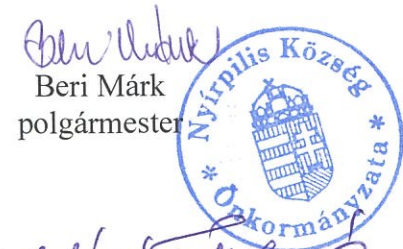 Beri Márk
polgármester
Nyírpilis Község
* Önkormányzata *